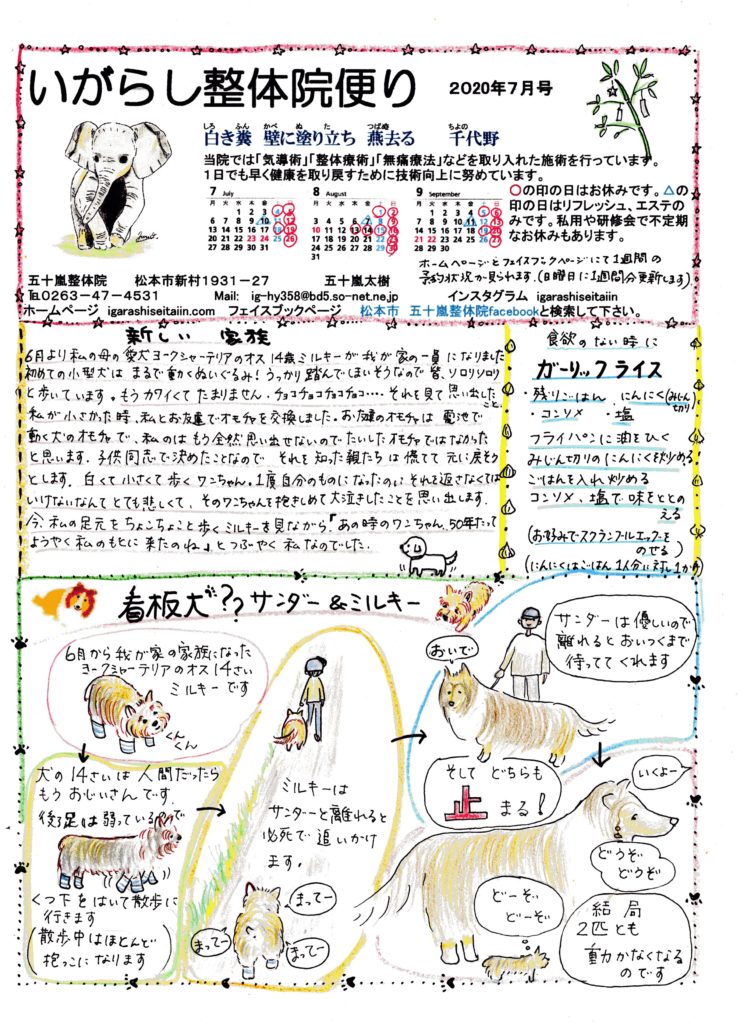 いがらし整体院便り 2020年7月号
しろ ふん かべ ぬ た つばめ ちよの
白き糞 壁に塗り立ち 燕去る 千代野
当院では「気導術」「整体療術」「無痛療法」などを取り入れた施術を行っています。
1日でも早く健康を取り戻すために技術向上に努めています。
7 July
月 火 水 木 金 土 日
1 2 3 4 5
6 7 8 9 10 11 12
13 14 15 16 17 18 19
20 21 22 23 24 25 26
27 28 29 30 31
8 August
月 火 水 木 金 土 日
1 2
3 4 5 6 7 8 9
10 11 12 13 14 15 16
17 18 19 20 21 22 23
24 25 26 27 28 29 30
31
9 September
月 火 水 木 金 土 日
1 2 3 4 5 6
7 8 9 10 11 12 13
14 15 16 17 18 19 20
21 22 23 24 25 26 27
28 29 30
〇の印の日はお休みです。△の
印の日はリフレッシュ、エステの
みです。私用や研修会で不定期
なお休みもあります。
ホームページとフェイスブックページにて1週間の
予約状況が見られます。(日曜日に1週間分更新します)
五十嵐整体院 松本市新村1931-27 五十嵐太樹
℡0263-47-4531 Mail: ig-hy358@bd5.so-net.ne.jp インスタグラム igarashiseitaiin
ホームページ igarashiseitaiin.com フェイスブックページ 松本市 五十嵐整体院facebookと検索して下さい。
新しい 家族
6月より私の母の愛犬ヨークシャーテリアのオス14歳ミルキーが我が家の一員になりました
初めての小型犬はまるで動くぬいぐるみ!うっかり踏んでしまいそうなので皆、ソロリソロリ
と歩いています。もうカワイくてたまりません。チョコチョコチョコチョコ‥‥それを見て思い出したこと。
私が小さかった時、私とお友達でオモチャを交換しました。お友達のオモチャは電池で
動く犬のオモチャで、私のはもう全然思い出せないのでたいしたオモチャではなかった
と思います。子供同志で決めたことなのでそれを知った親たちは慌てて元に戻そう
とします。白くて小さくて歩くワンちゃん。1度自分のものになったのにそれを返さなくては
いけないなんてとても悲しくて、そのワンちゃんを抱きしめて大泣きしたことを思い出します。
今、私の足元をちょこちょこと歩くミルキーを見ながら「あの時のワンちゃん、50年たって
ようやく私のもとに来たのね」とつぶやく私なのでした。
食欲のない時に
ガーリックライス
・残りごはん ・にんにく(みじん切り)
・コンソメ ・塩
フライパンに油をひく
みじん切りのにんにくを炒める
ごはんを入れ炒める
コンソメ、塩で味をととの
える
(お好みでスクランブルエッグを
のせる)
(にんにくはごはん1人分に対し1かけ)
看板犬?? サンダー&ミルキー
6月から我が家の家族になった
ヨークシャーテリアのオス14さい
ミルキーです
くん
くん
犬の14さいは人間だったら
もうおじいさんです。
後ろ足は弱っているので
くつ下をはいて散歩に
行きます
(散歩中はほとんど
抱っこになります)
ミルキーは
サンダーと離れると
必死で追いかけ
ます。
まってー
まってー
まってー
おいで
サンダーは優しいので
離れるとおいつくまで
待っててくれます
そして どちらも
止まる!
いくよー
どうぞ
どうぞ
どーぞ
どーぞ
結局
2匹とも
動かなくなる
のです